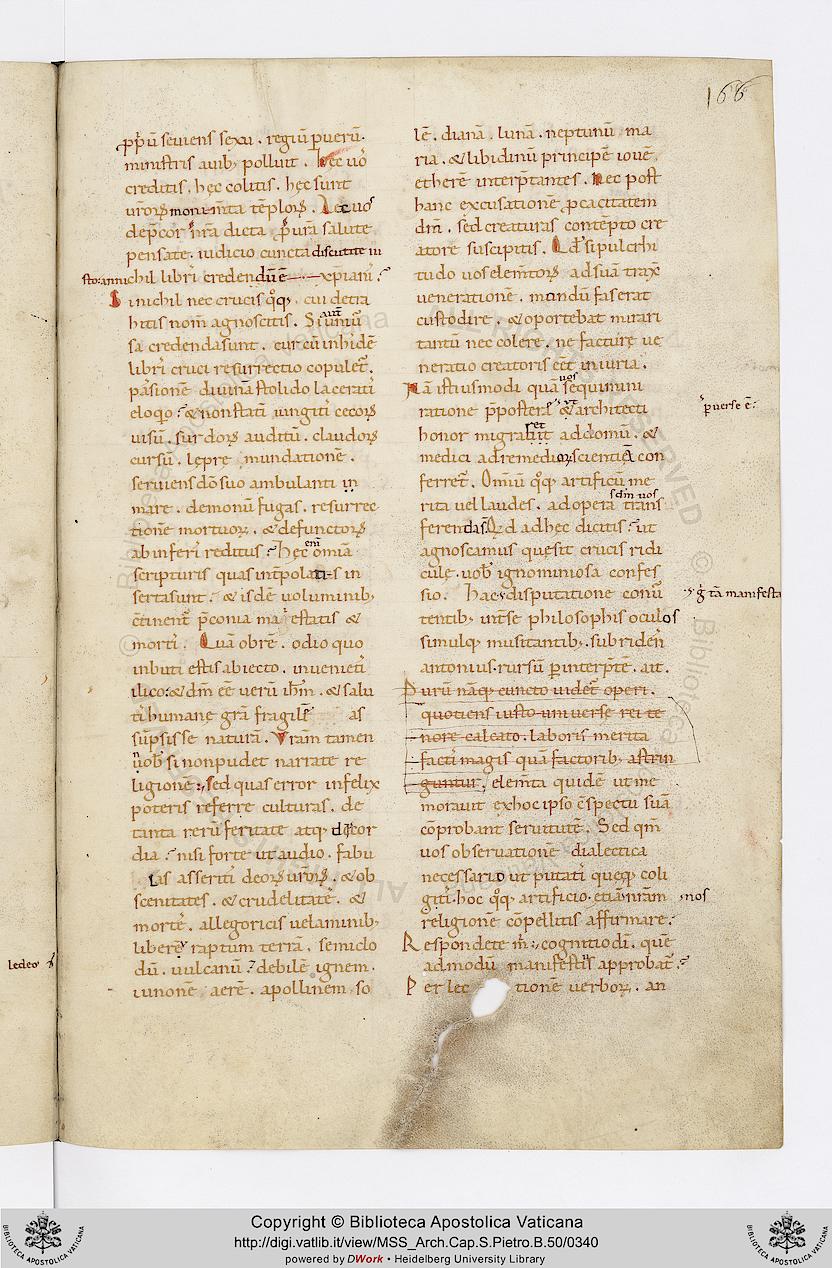 166
pp̄ū seviens sexu . regiū puerū .
ministris avib; polluit . hęc uō
creditis . hęc colitis . hęc sunt
monum̄ta tēploꝝ .
dep̄cor n̄ra dicta p̄ ūra salute
pensate . iudicio cuncta discutite iu
sto: an nichil libri credendū ē xp̄iani ?
S i nichil nec crucis q̊q; . cui detra
hitis nom̄ agnoscitis . Si aut̄ uniū
sa credenda sunt . cur cū inhidē
libri cruci resurrectio copulet̄ .
passionē divinā stolido lacerati
eloq̊ ? & non stati iungiti cecoꝝ
uisū . surdoꝝ auditū . claudoꝝ
cursū . lepre mundationē .
serviens dō suo ambulanti in
mare . demonū fugas . resurrec
tionē mortuoꝝ . & defunctoꝝ
ab inferi reditus ? Hęc em̄ omia
scripturis quas int̄polatis in
serta sunt . & isdē voluminib;
c̄tinent̄ p̄conia maiestatis &
morti . Quā obrē . odio quo
inbuti estis abiecto . invenieti
ilico: & dm̄ eē uerū ih̄m . & salu
ti humane gr̄a fragilē as
sūpsisse naturā . Vram tamen
uob si non pudet narrate re
ligionē ; sed quas error infelix
poteris referre culturas . de
tanta rerū feritate atq; dedecor
dia ? nisi forte ut audio . fabu
las asseriti deoꝝ uroꝝ . & ob
scenitates . & crudelitatē . &
mortē . allegoricis uelaminib;
liberē raptum terrā . semiclo
dū . uulcanū ? debilē ignem .
iunonē aerē . apollinem so
lē . dianā . lunā . neptunū ma
ria . & libidinū principē iovē .
etherē interp̄tantes . Nec post
hanc excusationē p̄cacitatem
dm̄ . sed creaturas contēpto cre
atore suscipitis . Qd̄ si pulchi
tudo uos elem̄toꝝ ad suā trax̄
venerationē . mundū fas erat
custodire . & oportebat mirari
tantū nec colere . ne facturę ue
neratio creatoris eēt iniuria .
Nā istiusmodi quā uos sequimini
ratione p̄posterē & architecti p̄uerse ē:
honor migrabit ad domū . &
medici ad remedioꝝ scientiā con
ferret̄ . Omiū q̊q; artificū me
rita vel laudes . ad opera sc̄dm uos trans
ferendas . Qd̄ ad hec dicitis ? ut
agnoscamus que sit crucis ridi
cule . uob ignominiosa confes
sio . Hac disputatione con̄ū g̊ tā manifesta
tentib; int̄ se philosophis oculos
simulq; musitantib; . subriden̄
antonius . rursū p̄ interp̄tē . ait .
P urū nāq; cuncto videt̄ operi .
quotiens iusto universe rei te
nore calcato . laboris merita
facti magis quā factorib; astrin
guntur . elem̄ta quidē ut me
moravit ex hoc ipso c̄spectu suā
cōprobant servitutē . Sed qm̄
uos observationē dialectica
necessario ut putati queq; coli
giti . hoc q̊q; artificio . etiā nram nos
religionē cōpellitis affirmare .
R espondete m̄ . cognitio dī . quē
admodū manifesti approbat̄ ?
P er lec tionē verboꝝ . an
ledeo
Copyright © Biblioteca Apostolica Vaticana
http://digi.vatlib.it/view/MSS_Arch.Cap.S.Pietro.B.50/0340
powered by DWork • Heidelberg University Library